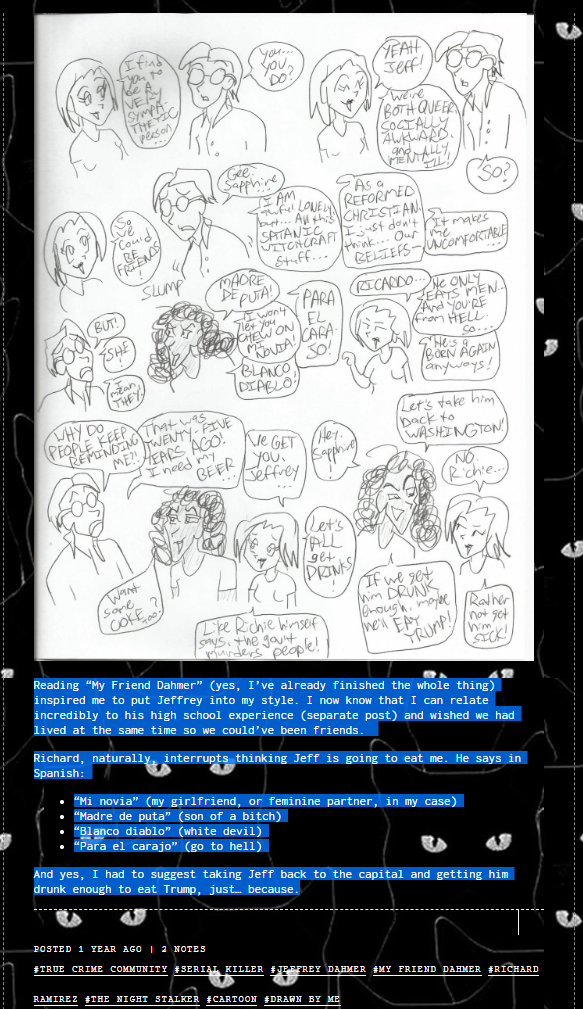 I find
you to
be a
VERY
SYMPA-
THETIC
person...
You...
YOU
DO?
YEAH
Jeff!
We're
BOTH QUEER,
SOCIALLY
AWKWARD,
and
MENTALLY
ILL!
SO?
So
we
could
BE
FRIENDS
!
Gee,
Sapphire...
I AM
awful LONELY
but... All this
SATANIC
WITCHCRAFT
stuff...
As a
REFORMED
CHRISTIAN,
I just don't
think... Our
BELIEFS-
It makes
me
UNCOMFORTABLE
SLUMP
BUT!
SHE
!
I
mean,
THEY!
MADRE
DE PUTA!
I won't
let you
CHEW ON
MI
NOVIA!
BLANCO
DIABLO!
PARA
EL
CARA-
SO!
RICARDO...
He ONLY
EATS MEN.
And YOU'RE
from HELL
so...
He's a
BORN AGAIN
anyways!
WHY DO
PEOPLE KEEP
REMINDING
ME?!
That was
TWENTY-FIVE
YEARS AGO!
I need my
BEER...
WE GET
YOU,
Jeffrey...
Hey,
Sapphire
!
Let's take him
back to
WASHINGTON!
NO,
Richie...
Want
some
COKE,
too?
Let's
ALL
get
DRINKS
!
Like Richie himself
says, the gov't
murders people!
If we get
him DRUNK
enough, maybe
he'll EAT
TRUMP!
Rather
not get
him
SICK!
Reading “My Friend Dahmer” (yes, I’ve already finished the whole thing)
inspired me to put Jeffrey into my style. I now know that I can relate
incredibly to his high school experience (separate post) and wished we had
lived at the same time so we could’ve been friends.
Richard, naturally, interrupts thinking Jeff is going to eat me. He says in
Spanish:
• “Mi novia” (my girlfriend, or feminine partner, in my case)
• “Madre de puta” (son of a bitch)
• “Blanco diablo” (white devil)
• “Para el carajo” (go to hell)
And yes, I had to suggest taking Jeff back to the capital and getting him
drunk enough to eat Trump, just… because.
POSTED 1 YEAR AGO | 2 NOTES
#TRUE CRIME COMMUNITY #SERIAL KILLER #JEFFREY DAHMER #MY FRIEND DAHMER #RICHARD
RAMIREZ #THE NIGHT STALKER #CARTOON #DRAWN BY ME